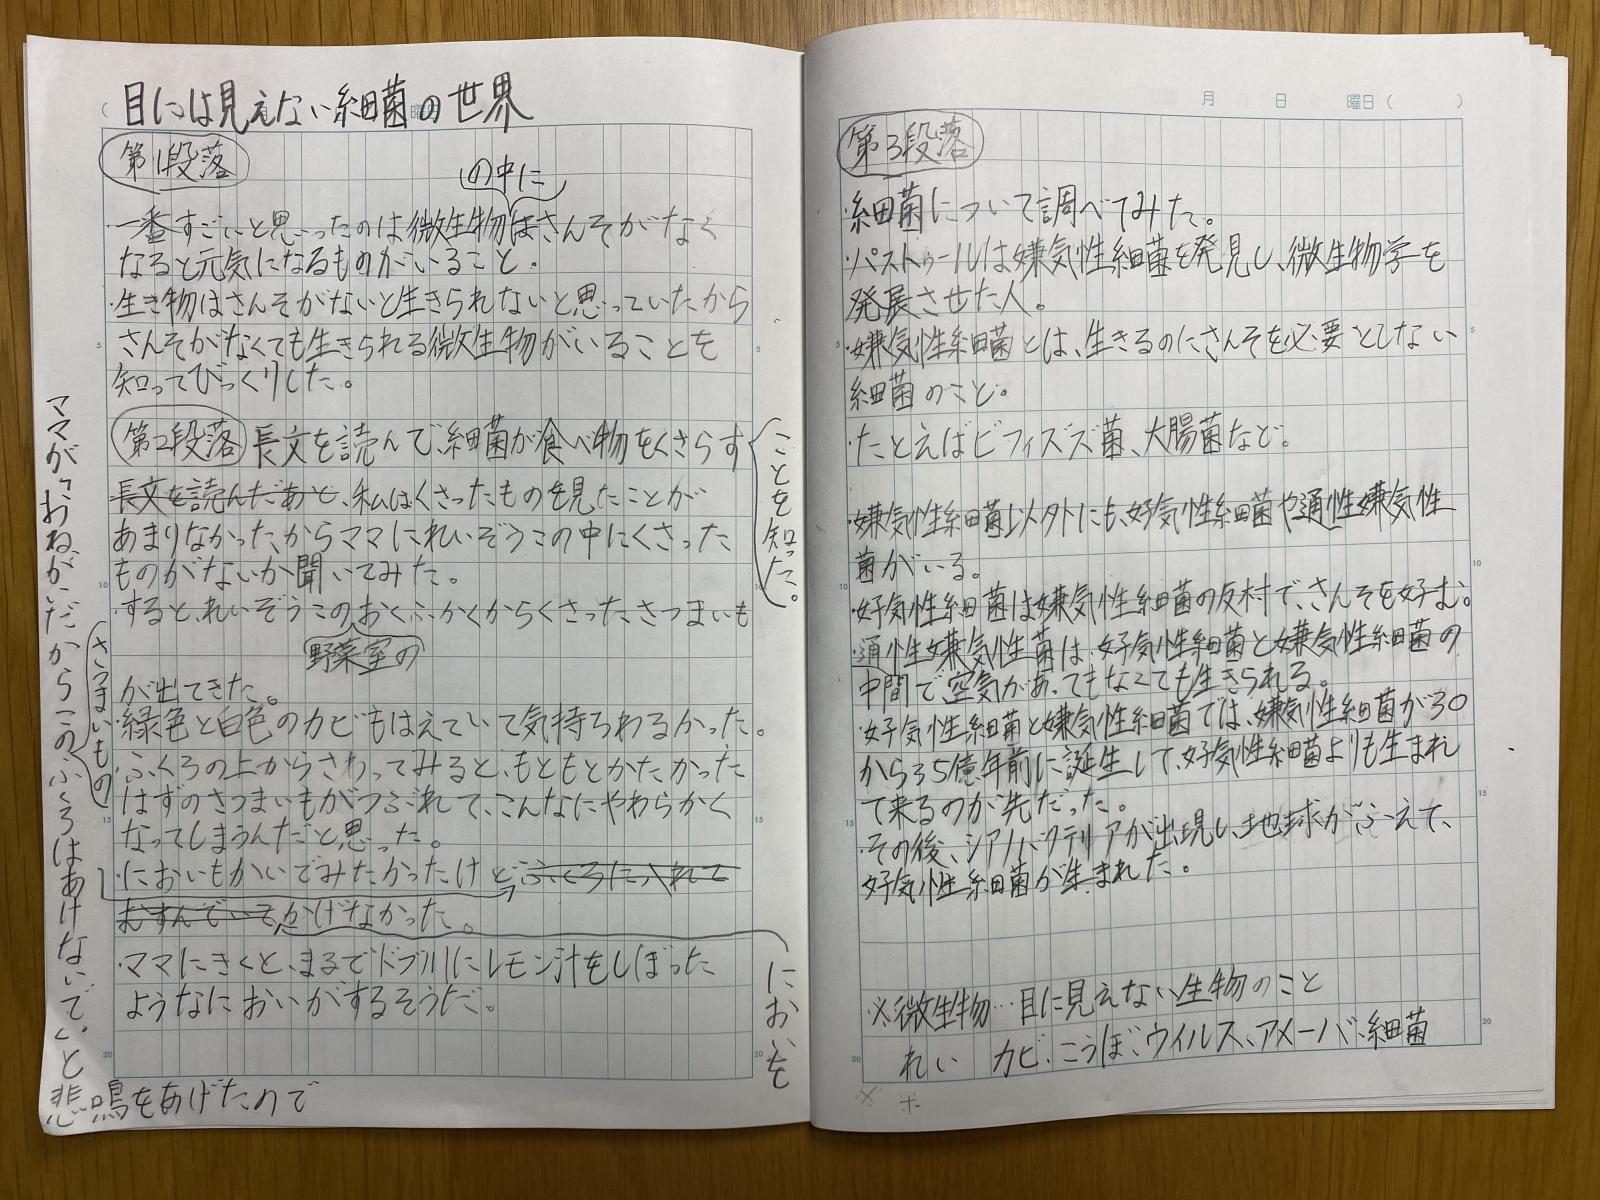 目には見えない細菌の世界
第1段落
の中に
・一番すごいと思ったのは微生物はさんそがなく
なると元気になるものがいること。
・生き物はさんそがないと生きられないと思っていたから
さんそがなくても生きられる微生物がいることを
知ってびっくりした。
第2段落 長文を読んで、細菌が食べ物をくさらす
ことを知った。
長文を読んだあと、私はくさったものを見たことが
あまりなかったからママにれいぞうこの中にくさった
ものがないか聞いてみた。
・すると、れいぞうこのおくふかくからくさったさつまいも
野菜室の
が出てきた。
・緑色と白色のカビもはえていて気持ちわるかった。
・ふくろの上からさわってみると、もともとかたかった
はずのさつまいもがつぶれて、こんなにやわらかく
なってしまうんだと思った。
・においもかいでみたかったけど、ふくろに入れて
むすんでいてかげなかった。
ママが「おねがいだからこのふくろはあけないで。」と
さつまいもの
悲鳴をあげたので
においを
・ママにきくと、まるでドブ川にレモン汁をしぼった
ようなにおいがするそうだ。
月 日 曜日( )
第3段落
・細菌について調べてみた。
・パストゥールは嫌気性細菌を発見し、微生物学を
発展させた人。
・嫌気性細菌とは、生きるのにさんそを必要としない
細菌のこと。
・たとえばビフィズズ菌、大腸菌など。
・嫌気性細菌以外にも、好気性細菌や通性嫌気性
菌がいる。
・好気性細菌は嫌気性細菌の反対で、さんそを好む。
・通性嫌気性菌は、好気性細菌と嫌気性細菌の
中間で空気があってもなくても生きられる。
・好気性細菌と嫌気性細菌では、嫌気性細菌が30
から35億年前に誕生して、好気性細菌よりも生まれ
て来るのが先だった。
・その後、シアノバクテリアが出現し、地球がふえて、
好気性細菌が生まれた。
※微生物…目に見えない生物のこと
れい カビ、こうぼ、ウイルス、アメーバ、細菌